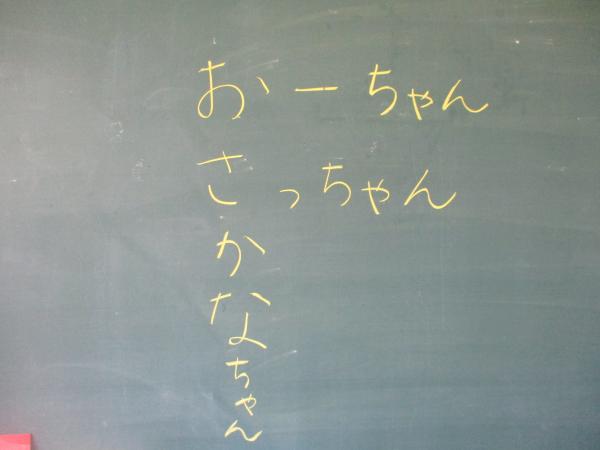 おーちゃん
さっちゃん
かなちゃん